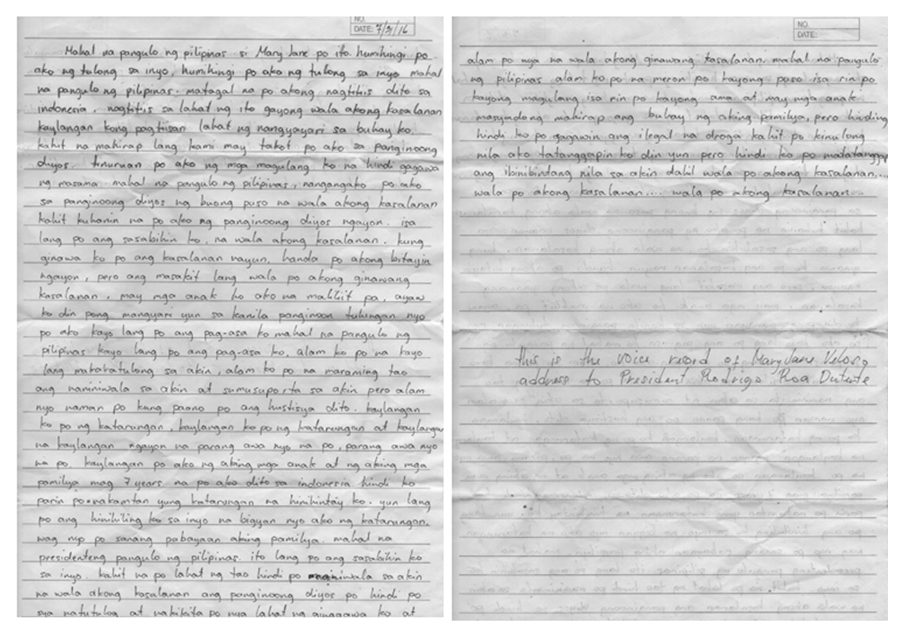 NO.
DATE: 7/31/16
Mahal na pangulo ng pilipinas si Mary Jane po ito humihingi po
ako ng tulong sa inyo, humihingi po ako ng tulong sa inyo mahal
na pangulo ng pilipinas. matagal na po akong nagtitiis dito sa
indonesia. nagtitiis sa lahat ng ito gayong wala akong kasalanan
kaylangan kong pagtiisan lahat ng nangyayari sa buhay ko.
kahit na mahirap lang kami may takot po ako sa panginoong
diyos. tinuruan po ako ng mga magulang ko na hindi gagawa
ng masama. mahal na pangulo ng pilipinas, nangangako po ako
sa panginoong diyos ng buong puso na wala akong kasalanan
kahit kuhanin na po ako ng panginoong diyos ngayon. isa
lang po ang sasabihin ko, na wala akong kasalanan. kung
ginawa ko po ang kasalanan nayun, handa po akong bitayin
ngayon, pero ang masakit lang wala po akong ginawang
kasalanan, may mga anak ho ako na maliliit pa, ayaw
ko din pong mangyari yun sa kanila panginoon tulungan nyo
po ako kayo lang po ang pag-asa ko mahal na pangulo ng
pilipinas kayo lang po ang pag-asa ko, alam ko po na kayo
lang makakatulong sa akin, alam ko po na maraming tao
ang naniniwala sa akin at sumusuporta sa akin pero alam
nyo naman po kung paano po ang hustisya dito. kaylangan
ko po ng katarungan, kaylangan ko po ng katarungan at kaylangan
na kaylangan ngayon na parang awa nyo na po, parang awa nyo
na po, kaylangan po ako ng aking mga anak at ng aking mga
pamilya mag 7 years na po ako dito sa indonesia hindi ko
parin po nakamtan yung katarungan na hinihintay ko. yun lang
po ang hinihiling ko sa inyo na bigyan nyo ako ng katarungan.
wag nyo po sanang pabayaan aking pamilya. mahal na
presidenteng pangulo ng pilipinas. ito lang po ang sasabihin ko
sa inyo. kahit na po lahat ng tao hindi po maniniwala sa akin
na wala akong kasalanan ang panginoong diyos po hindi po
sya natutulog at nakikita po nya lahat ng ginagawa ko at
NO.
DATE:
alam po nya na wala akong ginawang kasalanan. mahal na pangulo
ng pilipinas alam ko po na meron po kayong puso isa rin po
kayong magulang, isa rin po kayong ama at may mga anak
masyadong mahirap ang buhay ng aking pamilya, pero hinding
hindi ko po gagawin ang ilegal na droga kahit po kinulong
nila ako tatanggapin ko din yun pero hindi ko po matatanggap
ang ibinibintang nila sa akin dahil wala po akong kasalanan...
wala po akong kasalanan.... wala po akong kasalanan...
this is the voice record of Mary Jane Veloso,
address to President Rodrigo Roa Duterte